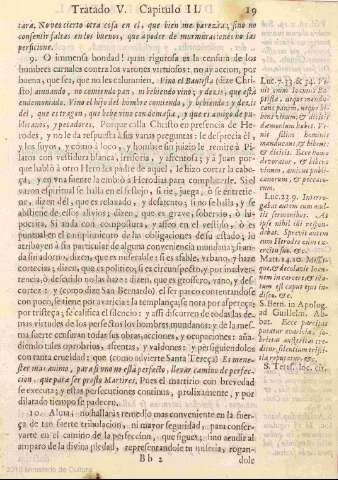 Tratado V. Capitulo II. 19
tara. No ves cierto otra cosa en el, que bien me parezca, sino no
consentir faltas en los buenos, que à poder de murmuraciones no las
perficione.
9. O immensa bondad! quan rigurosa es la censura de los
hombres carnales contra los varones virtuosos: no ay accion, por
buena, que sea, que no les calunien. Vino el Bautista (dize Chri-
sto) ayunando, no comiendo pan, ni bebiendo vino; y dezis, que està
endemoniado. Vino el hijo del hombre comiendo, y bebiendo; y dezis
del, que es tragon, que bebe vino con demasia, y que es amigo de pu-
blicanos, y pecadores. Porque calla Christo en presencia de He-
rodes, y no le da respuesta à sus varias preguntas: le desprecia èl
y los suyos, y como à loco, y hombre sin juizio le remite à Pi-
latos con vestidura blanca, irrisoria, y afrentosa; y à Juan por-
que hablò à otro Herodes padre de aquel, le hizo cortar la cabe-
ça, y en una fuente la embiò à Herodias para complacerle. Si el
varon espiritual se halla en el festejo, si rie, juega, ò se entretie-
ne, dizen dèl, que es relaxado, y desatento; si no se halla, y se
abstiene de essos alivios; dizen, que es grave, sobervio, ò hi-
pocrita. Si anda con compostura, y asseo en el vestido, ò es
puntual en el cumplimiento de las obligaciones de su estado; lo
atribuyen à fin particular de alguna conveniencia mundana; si an-
da sin adorno, dizen, que es miserable: si es afable, urbano, y haze
cortesias; dizen, que es politico; si es circunspecto, y por inadver-
tencia, ò descuido no las haze; dizen, que es grossero, vano, y des-
cortès: y (como dize San Bernardo) el ser parco contentandose
con poco, se tiene por avaricia: la templança, se nota por aspereça;
por tristeça; se califica el silencio: y assi discurren de todas las de-
mas virtudes de los perfectos los hombres mundanos; y de la mes-
ma suerte censuran todas sus obras, acciones, y ocupaciones: aña-
diendoles oprobrios, afrentas, y valdones: y persiguiendolos
con tanta crueldad: que (como advierte Santa Teresa) Es menes-
ter mas animo, para si uno no està perfecto, llevar camino de perfec-
cion, que para ser presto Martires; Pues el martirio con brevedad
se executa; y estas persecuciones continuas, prolixamente, y por
dilatado tiempo se padecen.
10. Alma: no hallaràs remedio mas conveniente en la fuer-
ça de tan fuerte tribulacion, ni mayor seguridad, para conser-
varte en el camino de la perfeccion, que sigues; sino acudir al
amparo de la divina piedad, representandole tu miseria, rogan-
Bb 2 dole
Luc. 7. 33. & 34. Ve-
nit enim Joannes Ba-
ptista, neque mandu-
cans panem, neque bi-
bens vinum; & dicitis:
dæmonium habet. Ve-
nit filius hominis
manducans, & bibens;
& dicitis: Ecce homo
devorator, & bibens
vinum, amicus publi-
canorum, & peccato-
rum.
Luc. 23. 9. Interro-
gabat autem eum mul-
tis sermonibus. At
ipse nihil illi respon-
debat. Sprevit autem
eum Herodes cum ex-
ercitu suo. &c.
Matt. 14. 10. Misit-
que, & decollavit Ioan-
nem in carcere: & alla-
tum est caput ejus in
disco. &c.
S. Bern. in Apolog.
ad Guillelm. Ab-
bat.
S. Teres. loc. cit.
©2010 Ministerio de Cultura